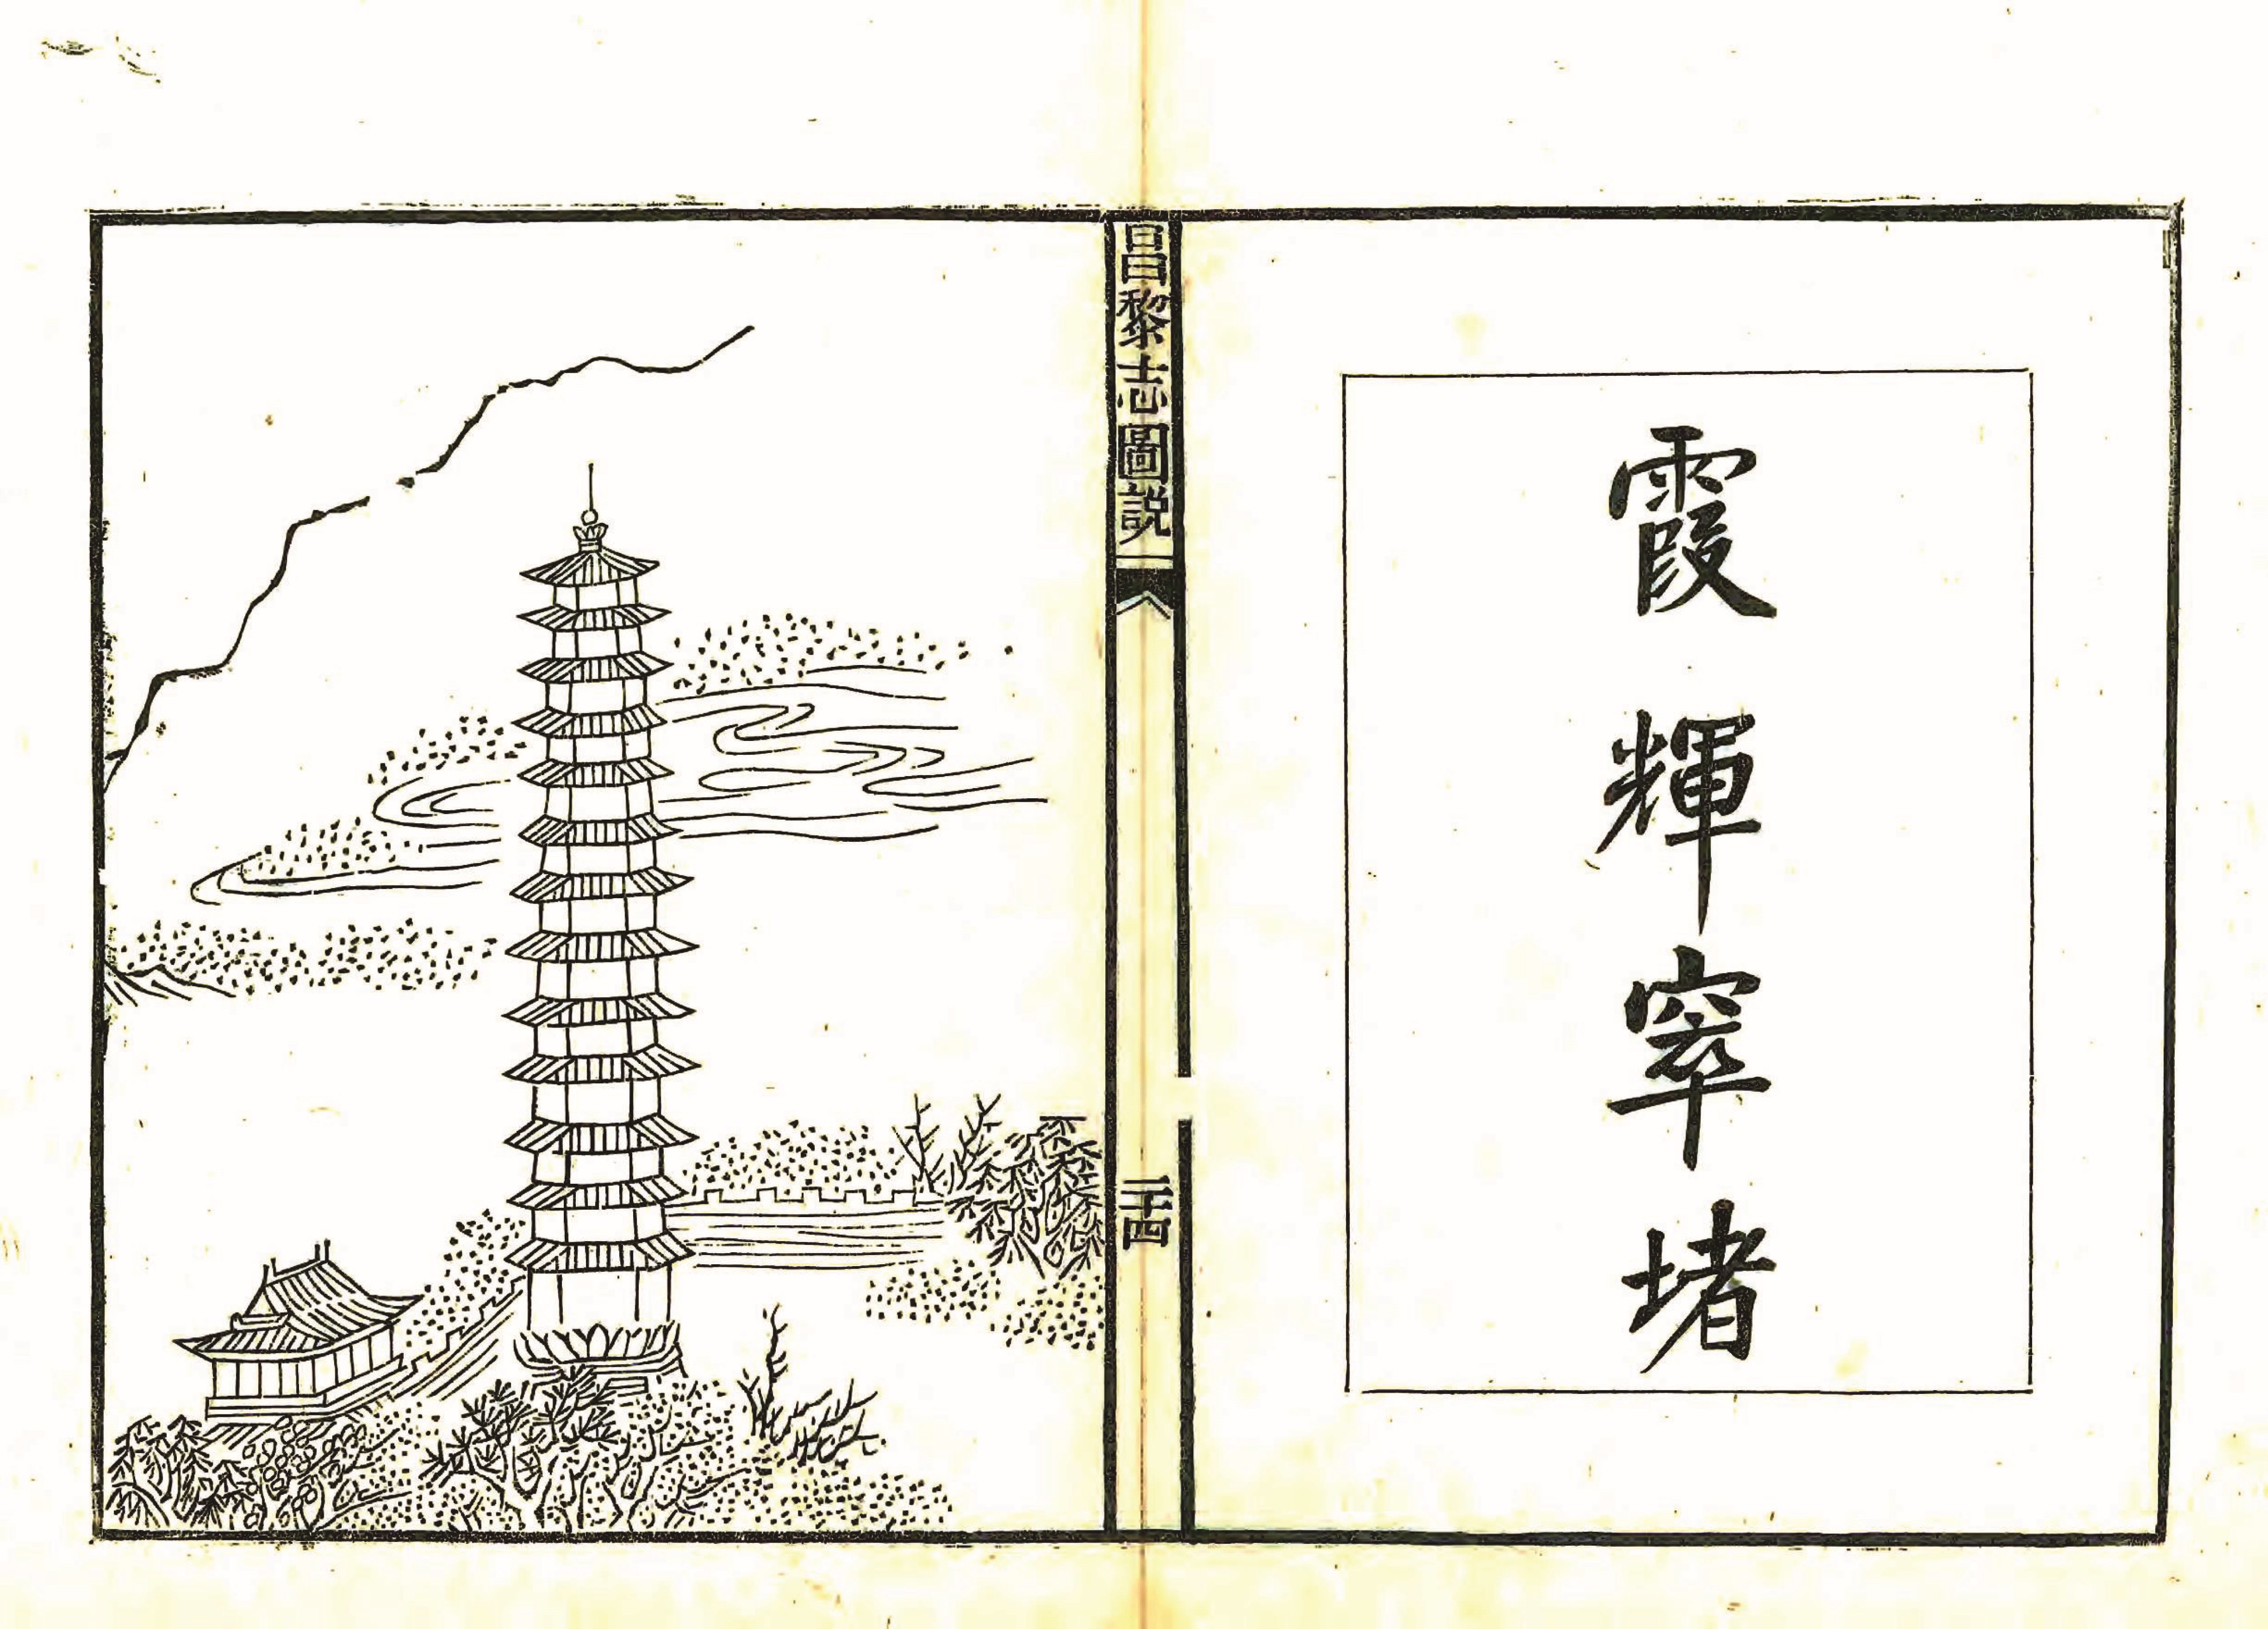 霞輝窣堵
昌黎志圖說
二十四